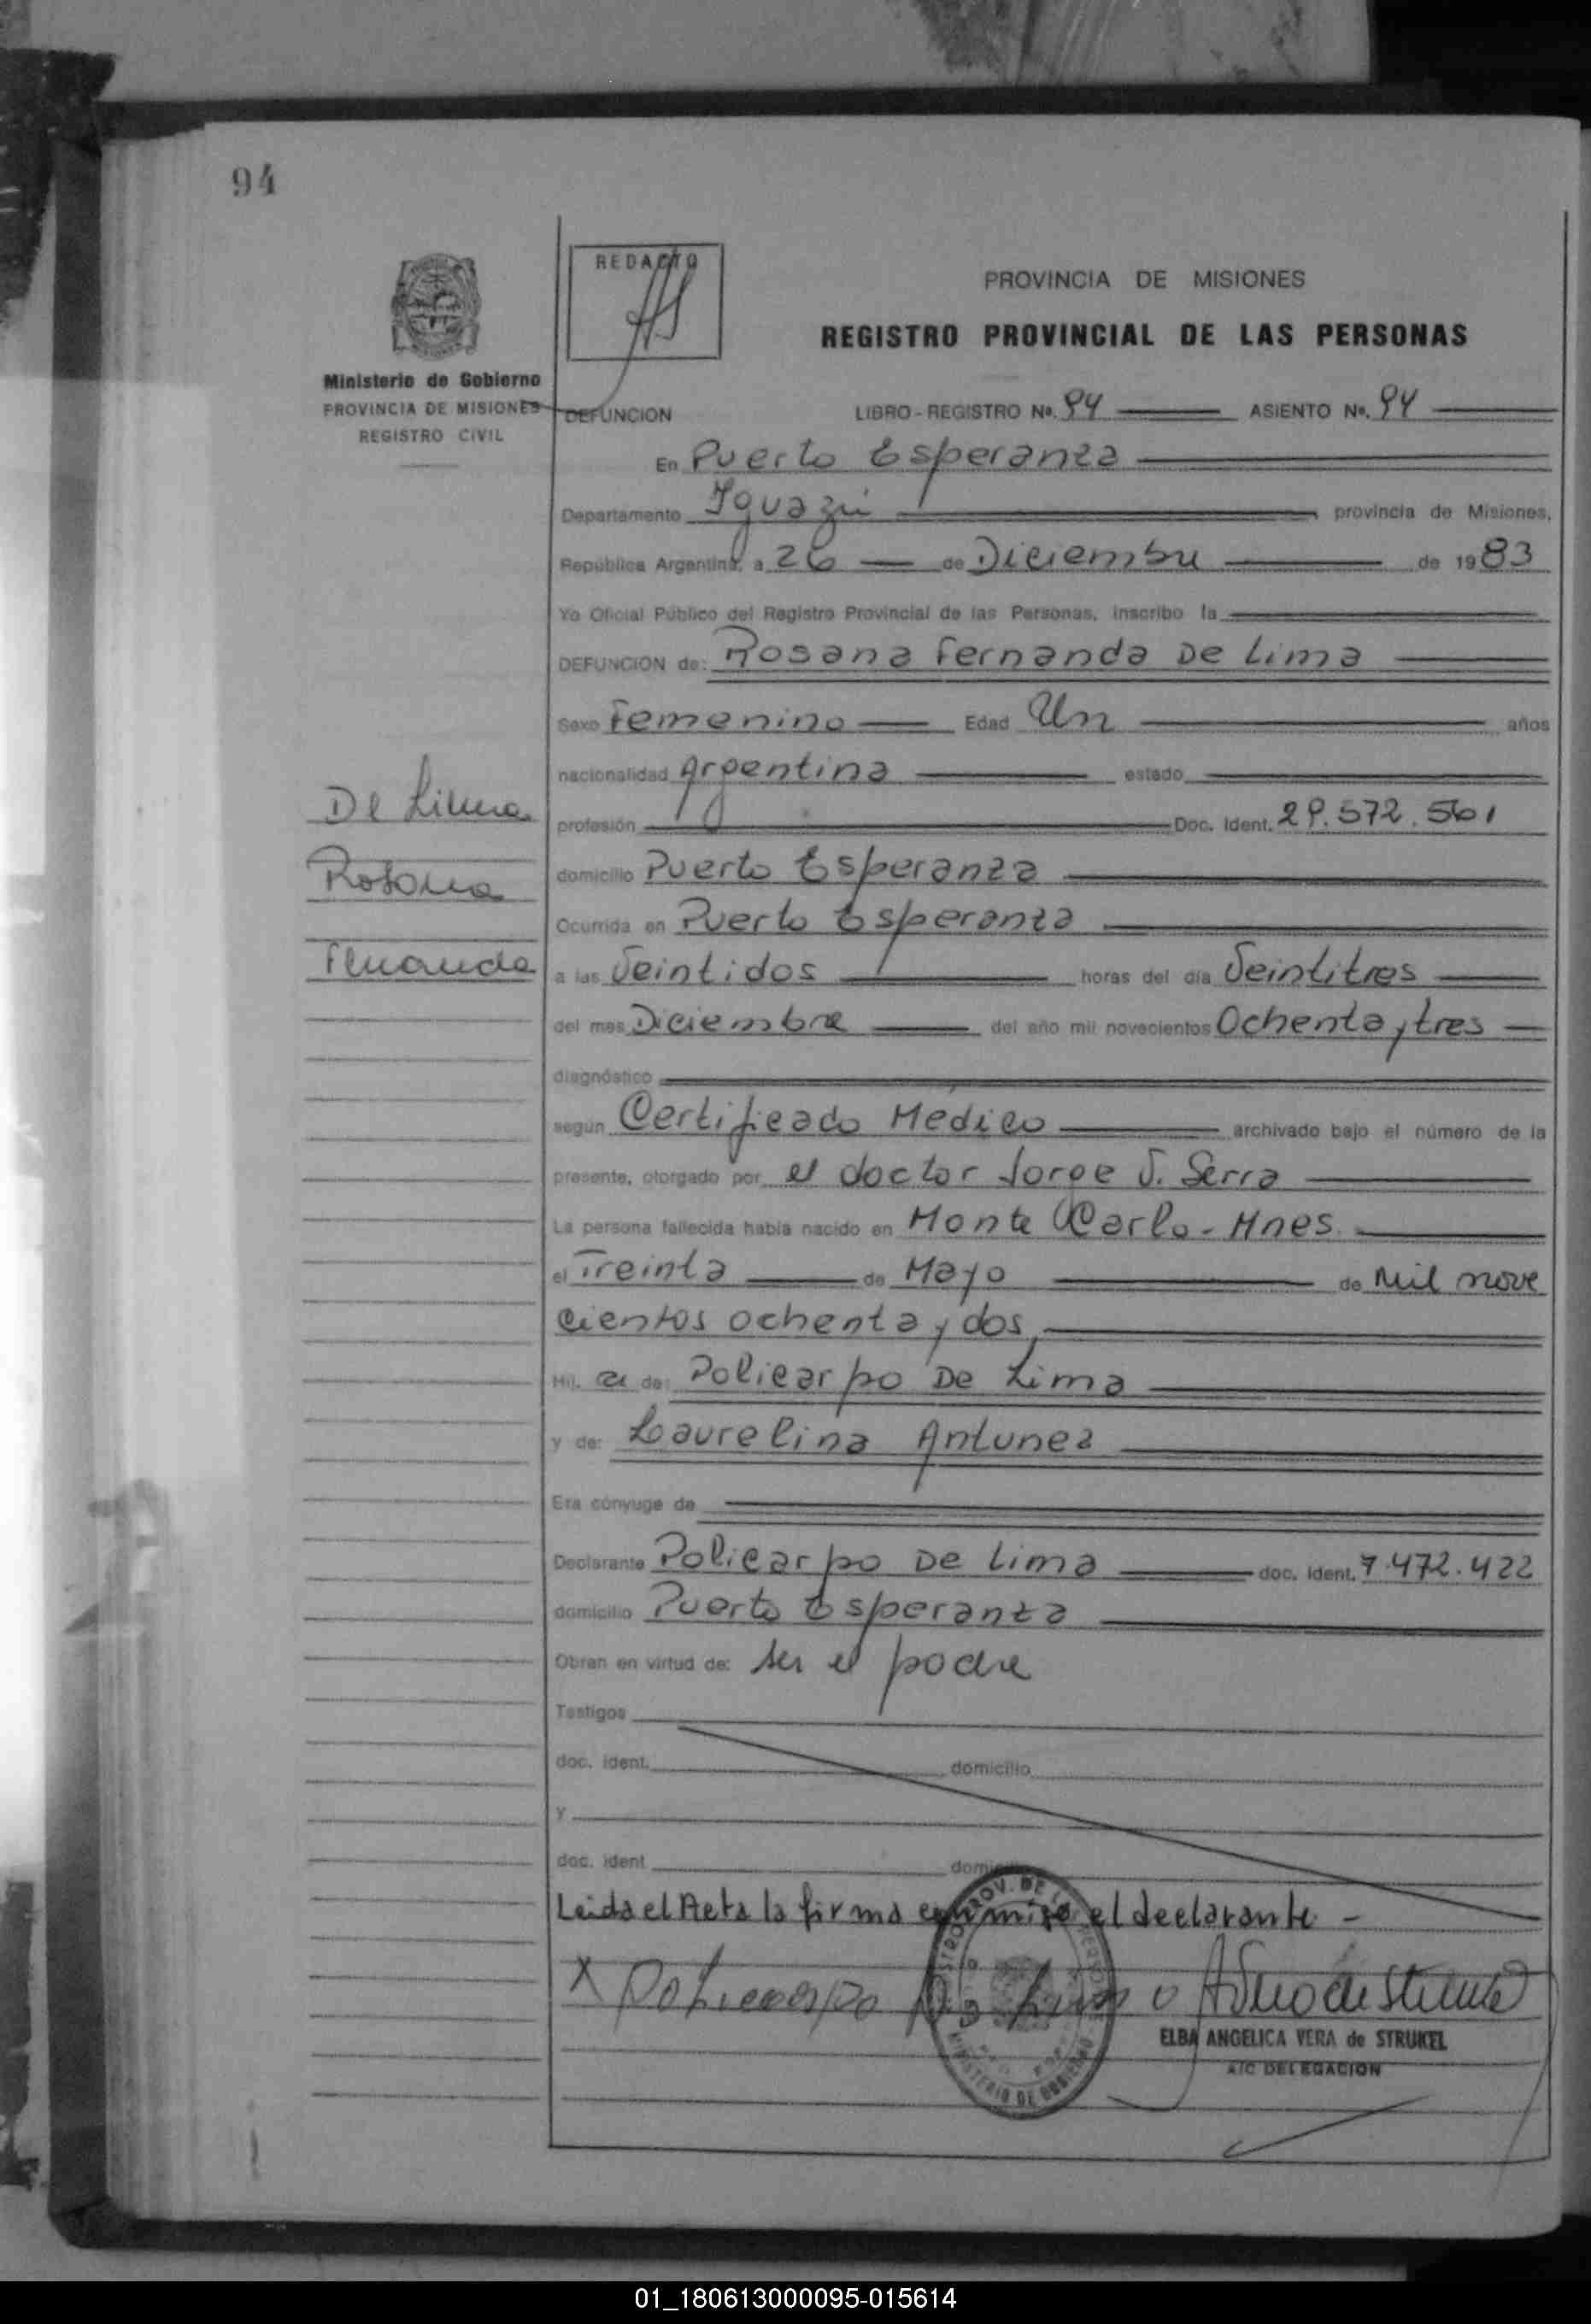 94
REDACTO
PROVINCIA DE MISIONES
REGISTRO PROVINCIAL DE LAS PERSONAS
Ministerio de Gobierno
PROVINCIA DE MISIONES
REGISTRO CIVIL
DEFUNCION LIBRO - REGISTRO Nº. 94 ASIENTO Nº. 94
En Puerto Esperanza
Departamento Iguazú provincia de Misiones,
República Argentina, a 26 de Diciembre de 1983
Yo Oficial Público del Registro Provincial de las Personas, inscribo la
DEFUNCION de: Rosana Fernanda De Lima
Sexo Femenino Edad Un años
nacionalidad Argentina estado
De Lima
profesión Doc. Ident. 29.572.561
Rosana
domicilio Puerto Esperanza
Ocurrida en Puerto Esperanza
Fernanda
a las Veintidos horas del día Veintitres
del mes Diciembre del año mil novecientos Ochenta y tres
diagnóstico
según Certificado Médico archivado bajo el número de la
presente, otorgado por el doctor Jorge J. Serra
La persona fallecida había nacido en Monte Carlo - Mnes.
el Treinta de Mayo de Mil nove
cientos ochenta y dos
Hij. a de: Policarpo De Lima
y de: Laurelina Antunez
Era cónyuge de
Declarante Policarpo De Lima doc. ident. 7.472.422
domicilio Puerto Esperanza
Obran en virtud de: ser el padre
Testigos
doc. ident. domicilio
y
doc. ident domicilio
Leida el Acta la firma conmigo el declarante -
X Policarpo De Lima
ELBA ANGELICA VERA de STRUKEL
A/C DELEGACION
MINISTERIO DE GOBIERNO
01_180613000095-015614